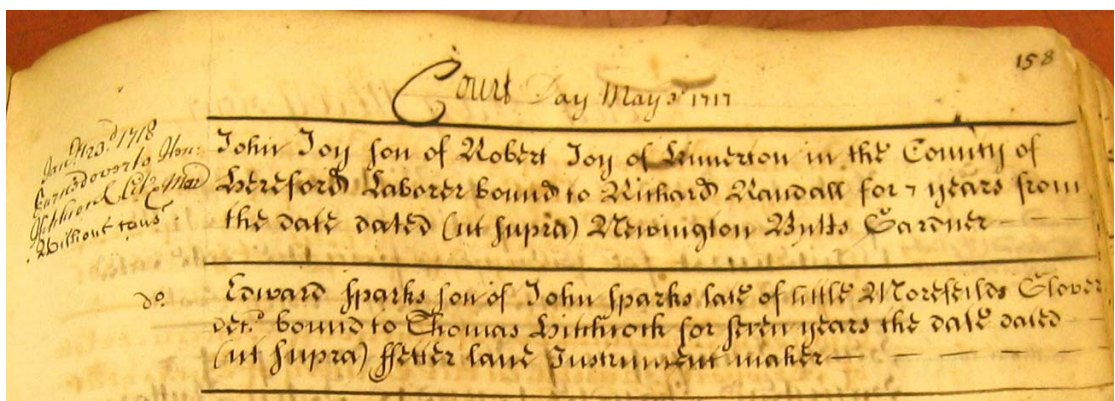 158
Court Day May 3d 1717
Jany 23.d 1718
turned over to
Without cons
John Joy son of Robert Joy of Kinnerton in the County of
Hereford Laborer bound to Richard Randall for 7 years from
the date dated (ut supra) Newington Butts Gardner
do.
Edward Sparks son of John Sparks late of little Morefeilds Glover
decd. bound to Thomas Hitchcock for seven years the date dated
(ut supra) ffetter lane Instrument maker